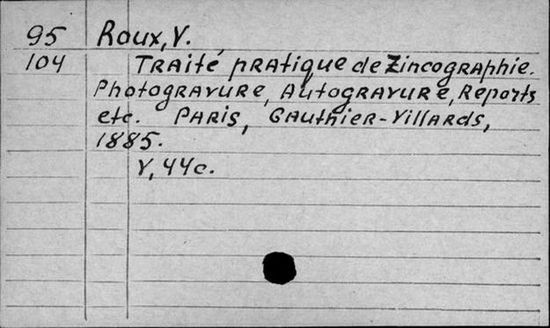 95 Roux, V.
104 Traité pratique de Zincographie.
Photogravure, Autogravure, Reports
etc. Paris, Gauthier-Villards,
1885.
V, 44c.